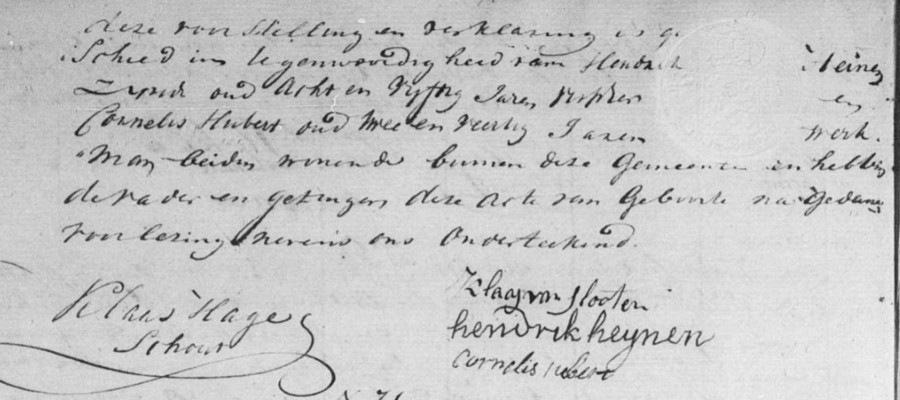 deze voorstelling en verklaring is ge
Schied in tegenwoordigheid van Hendrik Heinen
Zynde oud Acht en Vyftig Jaren en
Cornelis Hubert oud twee en Veertig Jaren werk
Man beiden wonende binnen deze Gemeente en hebben
de vader en getuigen deze Acte van Geboorte na gedane
voorlezing nevens ons Onderteekend.
Klaas Hage
Schout
Klaas van Slooten
hendrik heynen
Cornelis Hubert